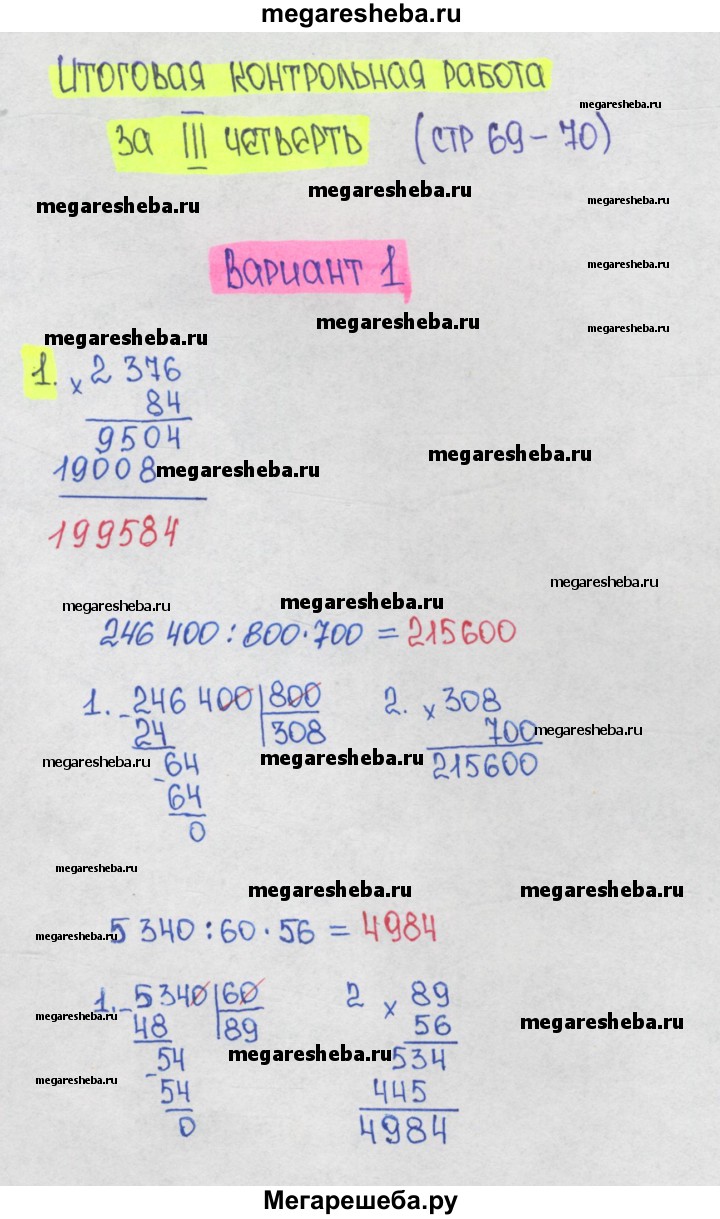 megaresheba.ru
Итоговая контрольная работа
megaresheba.ru
за III четверть (стр 69-70)
megaresheba.ru
megaresheba.ru
megaresheba.ru
Вариант 1
megaresheba.ru
megaresheba.ru
megaresheba.ru
megaresheba.ru
1. × 2 376
84
9504
megaresheba.ru
19008
megaresheba.ru
199584
megaresheba.ru
megaresheba.ru
megaresheba.ru
246 400 : 800 · 700 = 215600
1. - 246 400 | 800 2. × 308
24 | 308 700
megaresheba.ru
megaresheba.ru
megaresheba.ru
- 64 215600
64
0
megaresheba.ru
megaresheba.ru
megaresheba.ru
megaresheba.ru
5 340 : 60 · 56 = 4984
1. - 5340 | 60 2 × 89
48 | 89 56
megaresheba.ru
megaresheba.ru
megaresheba.ru
- 54 534
megaresheba.ru
54 445
0 4984
Мегарешеба.ру